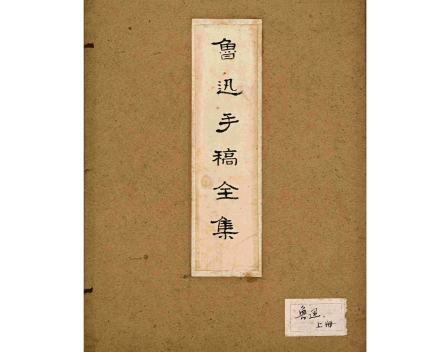 魯迅手稿全集
魯迅
上册